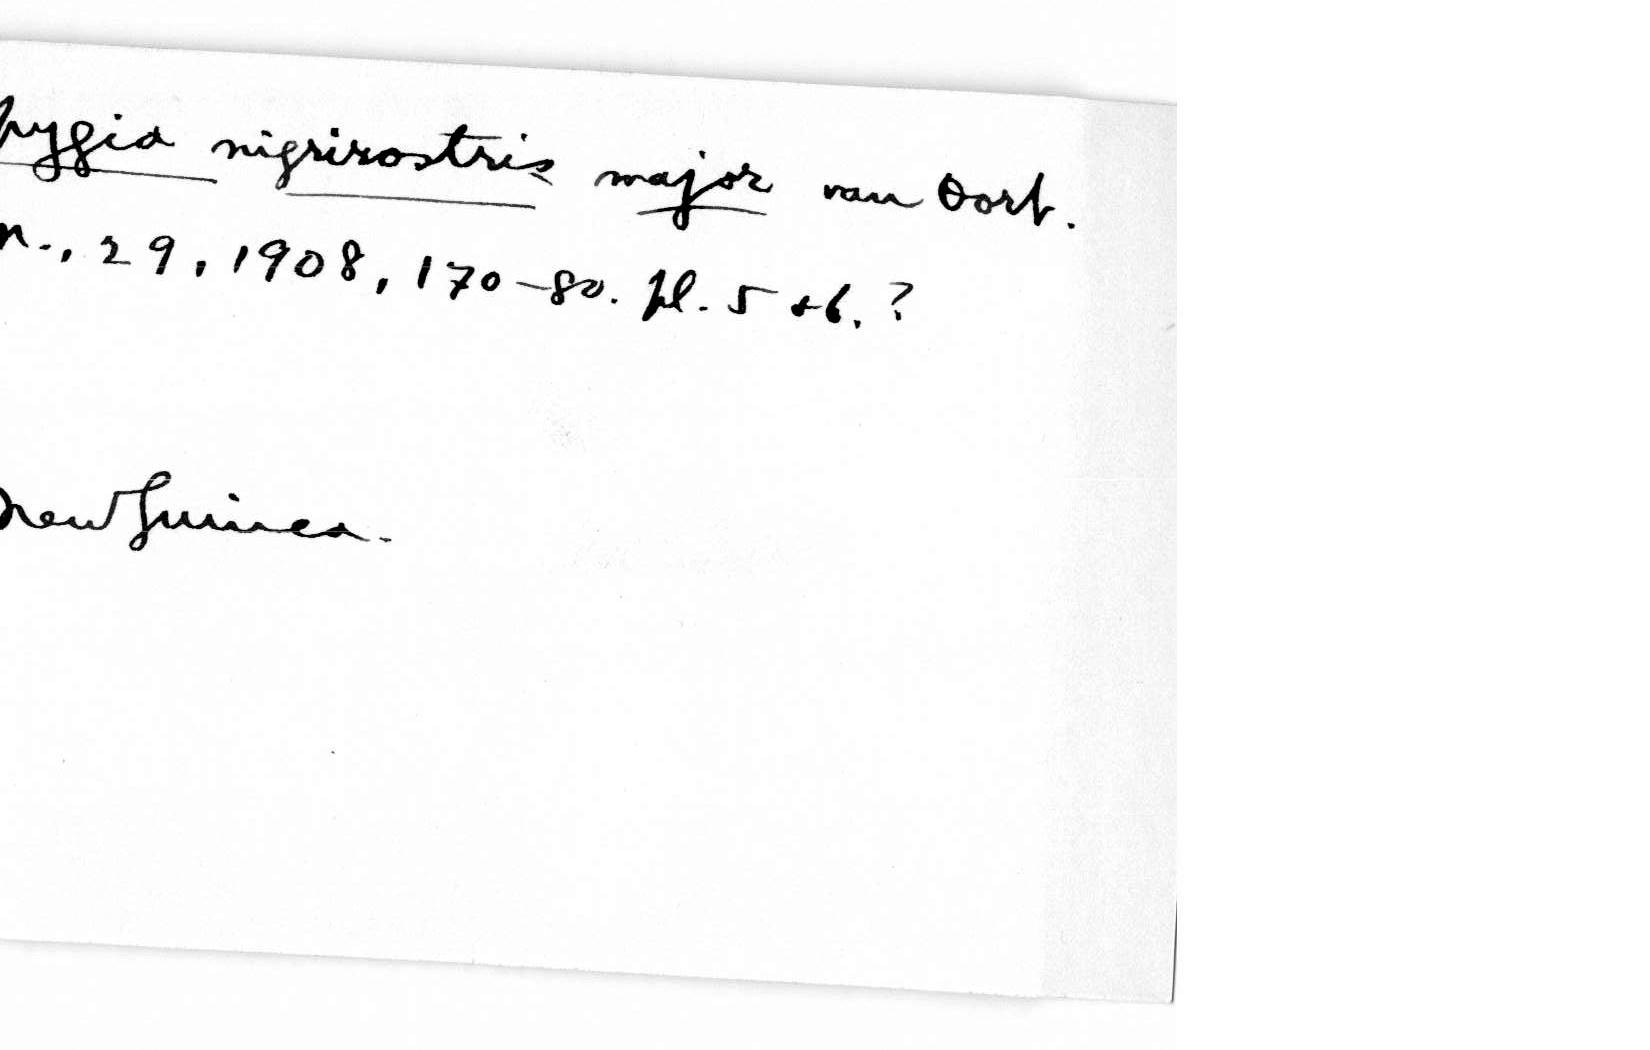 pygia nigrirostris major van Oort.
n., 29, 1908, 170-80. pl. 5 + 6. ?
New Guinea.